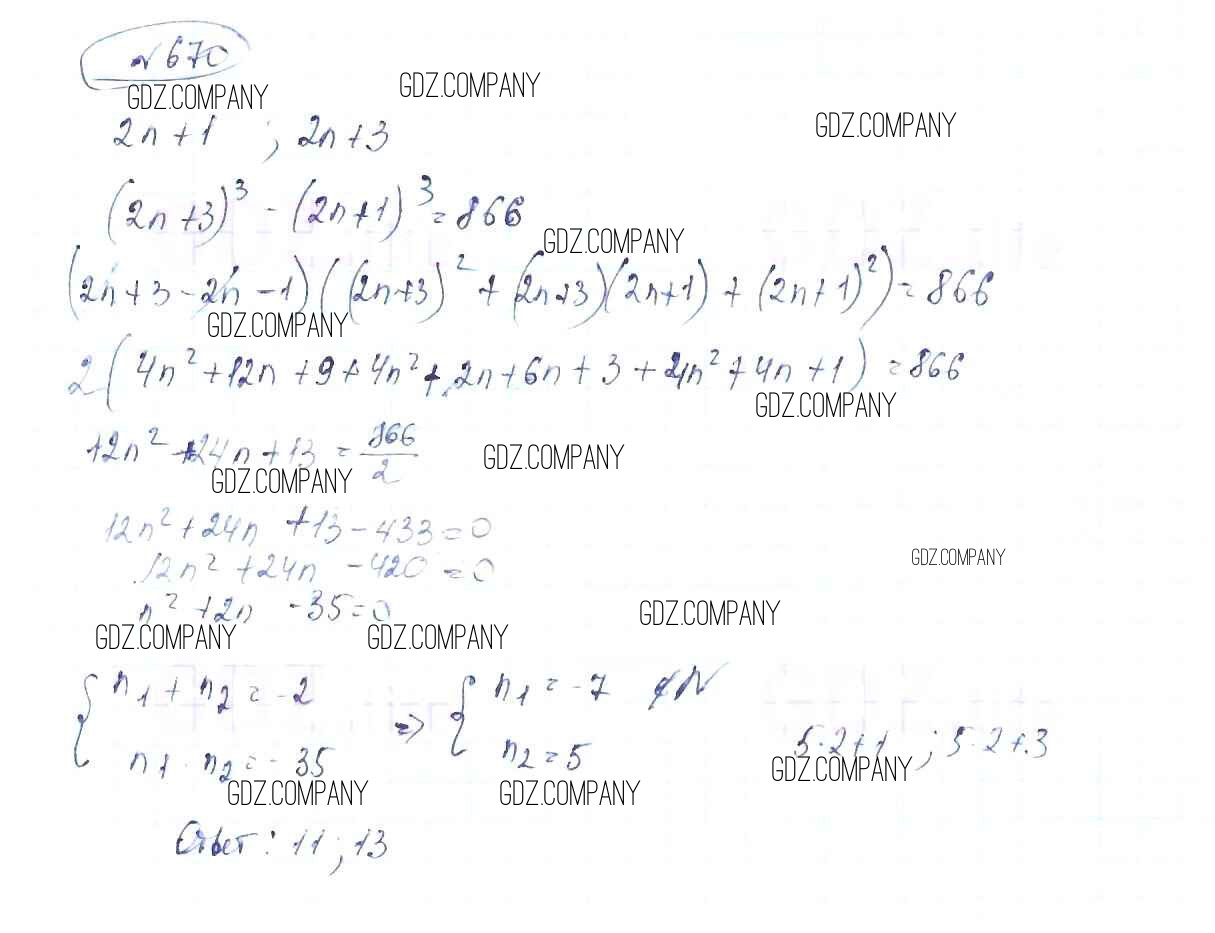 №670
GDZ.COMPANY GDZ.COMPANY
GDZ.COMPANY
2n+1 ; 2n+3
(2n+3)³ - (2n+1)³ = 866
GDZ.COMPANY
(2n+3-2n-1)((2n+3)²+(2n+3)(2n+1)+(2n+1)²)=866
GDZ.COMPANY
2(4n²+12n+9+4n²+2n+6n+3+4n²+4n+1)=866
GDZ.COMPANY
12n²+24n+13=866/2
GDZ.COMPANY GDZ.COMPANY
12n²+24n+13-433=0
GDZ.COMPANY
12n²+24n-420=0
n²+2n-35=0
GDZ.COMPANY GDZ.COMPANY GDZ.COMPANY
{ n₁+n₂=-2 => { n₁=-7 ∉N
n₁·n₂=-35 n₂=5 5·2+1 ; 5·2+3
GDZ.COMPANY GDZ.COMPANY GDZ.COMPANY
Ответ: 11 ; 13